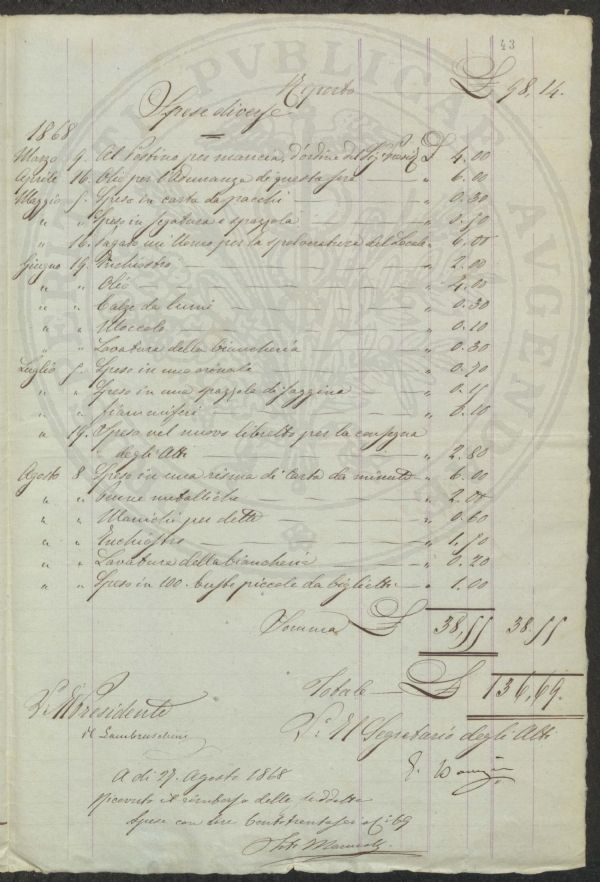 43
Riporto £ 98,14.
Spese diverse
1868
Marzo 9. Al Postino per mancia d'ordine del Sig. £ 4.00
Aprile 16. Olio per l'Adunanza di questa sera " 6.00
Maggio 5. Speso in carta da pacchi " 0.30
" " Speso in segatura e spazzola " 0.50
" 16. Pagato un Uomo per la spolveratura del Locale " 6.00
Giugno 19. Inchiostro " 2.00
" " Olio " 4.00
" " Calze da lumi " 0.30
" " Moccolo " 0.10
" " Lavatura della biancheria " 0.30
Luglio 5. Speso in una " 0.70
" " Speso in una spazzola di saggina " 0.15
" " fiammiferi " 0.10
" 19. Speso nel nuovo libretto per la consegna
degli Atti " 2.80
Agosto 8 Speso in una risma di Carta da minute " 6.00
" " Penne metalliche " 2.05
" " Manichi per dette " 0.60
" " Inchiostro " 1.50
" " Lavatura della biancheria " 0.20
" " Speso in 100. buste piccole da biglietti " 1.00
Somma £ 38,55 38.55
Totale £ 136,69.
V° Il Presidente
R Lambruschini
V° Il Segretario degli Atti
A dì 27. Agosto 1868
Ricevuto il rimborso delle suddette
spese con Lire Centotrentasei e C. 69